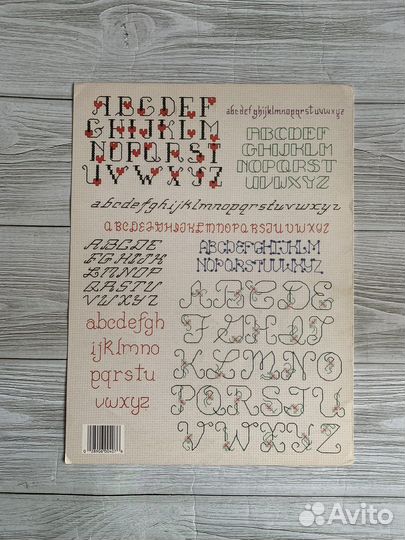 ABCDEF
GHIJKL
MNOPQRST
UVWXYZ
abcdefghijklmnopqrstuvwxyz
ABCDEF
GHIJKL
MNOPQRST
UVWXYZ
abcdefghijklmnopqrstuvwxyz
ABCDEFGHIJKLMNOPQRSTUVWXYZ
ABCDE
FGHIJK
LMNOP
QRSTU
VWXYZ
ABCDEFGHIJKLM
NOPQRSTUVWXYZ
abcdefgh
ijklmno
pqrstu
vwxyz
ABCDE
FGHIJ
KLMNO
PQRSTU
VWXYZ
Avito